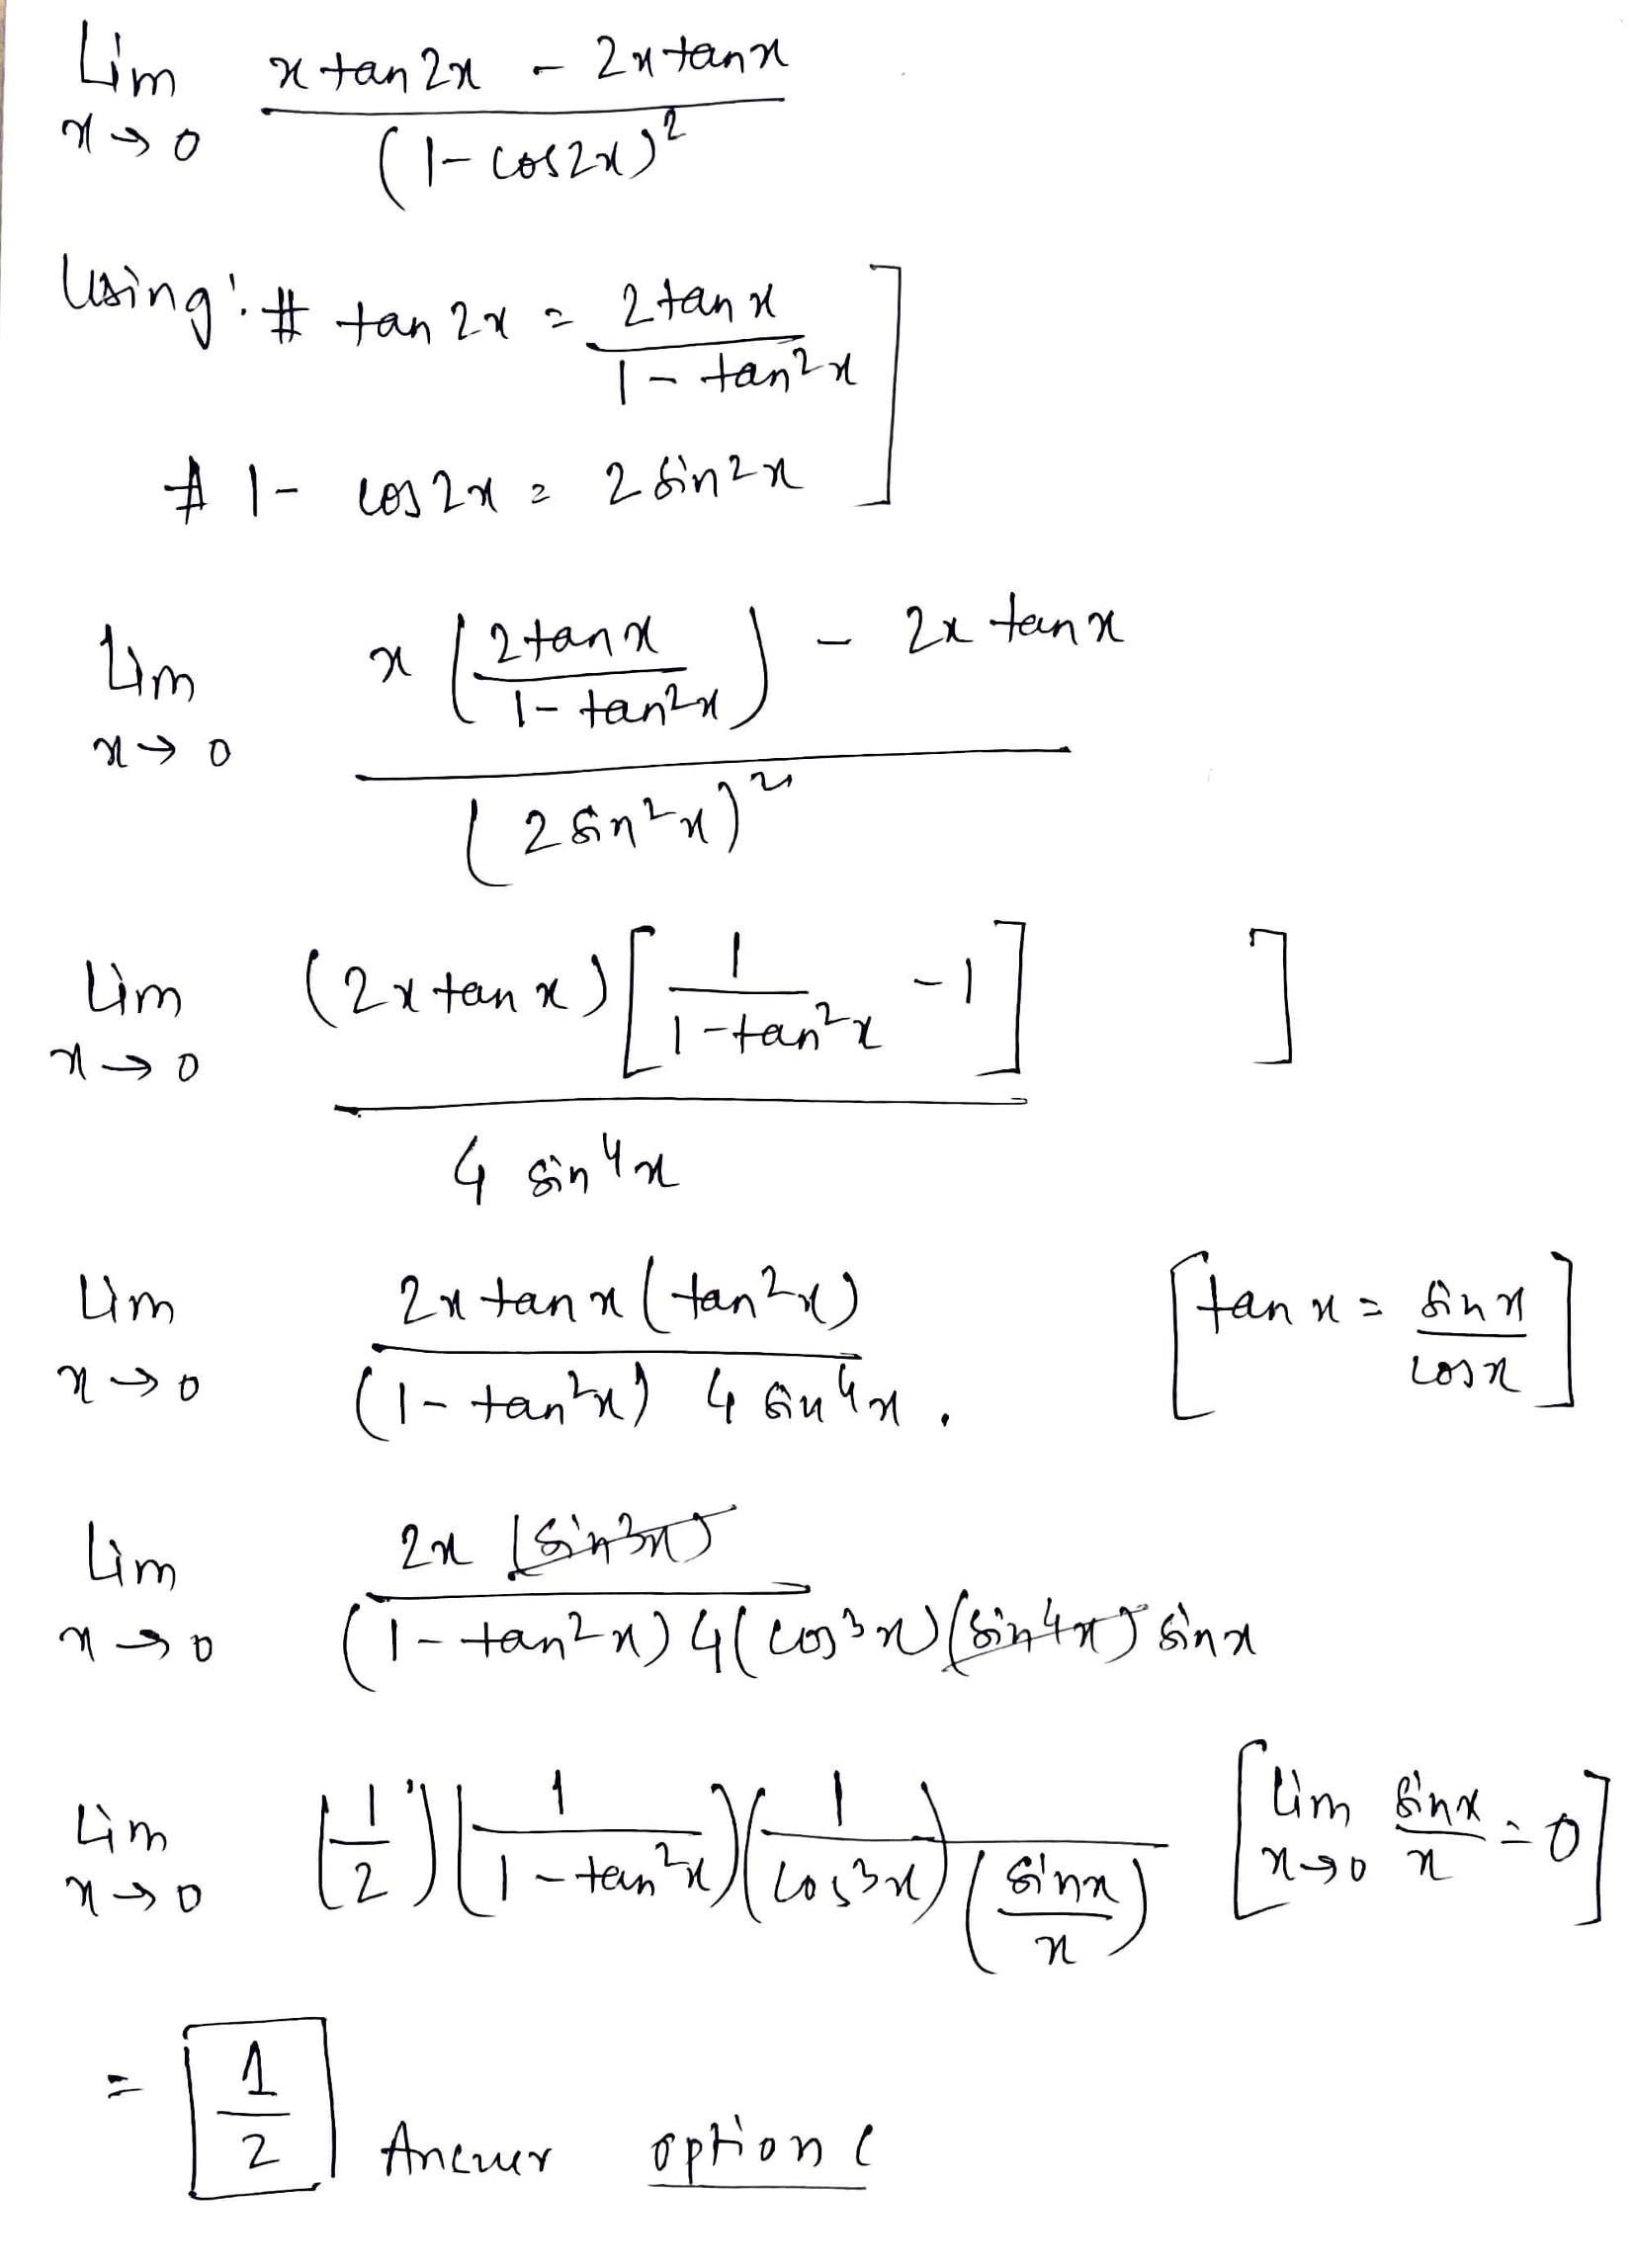 Lim x→0 (x tan 2x - 2x tan x) / (1 - cos 2x)²
Using: # tan 2x = 2 tan x / (1 - tan²x) ]
# 1 - cos 2x = 2 sin²x
Lim x→0 (x (2 tan x / (1 - tan²x)) - 2x tan x) / (2 sin²x)²
Lim x→0 (2x tan x) [1 / (1 - tan²x) - 1] / 4 sin⁴x ]
Lim x→0 2x tan x (tan²x) / (1 - tan²x) 4 sin⁴x . [tan x = sin x / cos x]
Lim x→0 2x (sin³x) / (1 - tan²x) 4 (cos³x) (sin⁴x) sin x
Lim x→0 (1/2) (1 / (1 - tan²x)) (1 / cos³x) 1 / (sin x / x) [Lim x→0 sin x / x = 0]
= 1/2 Ancuer option C